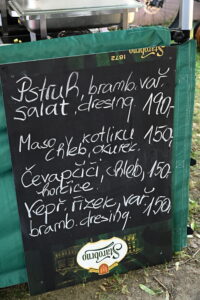 Starobrno
1872
Pstruh, bramb. vař.
salát, dresing 190,-
Maso z kotlíku 150,-
chléb, okurek.
Čevapčiči, chléb, 150,-
hořčice.
Vepř. řízek, vař. 150,-
bramb. dresing.
Starobrno